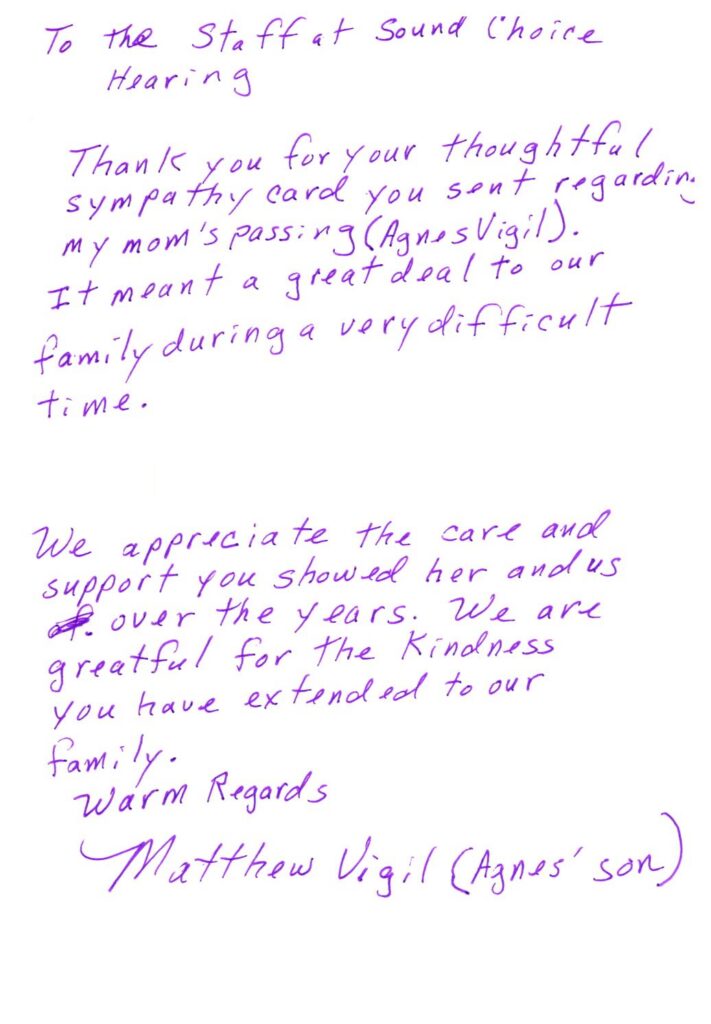 To the Staff at Sound Choice
Hearing
Thank you for your thoughtful
sympathy card you sent regarding
my mom's passing (Agnes Vigil).
It meant a great deal to our
family during a very difficult
time.
We appreciate the care and
support you showed her and us
over the years. We are
greatful for the kindness
you have extended to our
family.
Warm Regards
Matthew Vigil (Agnes' son)